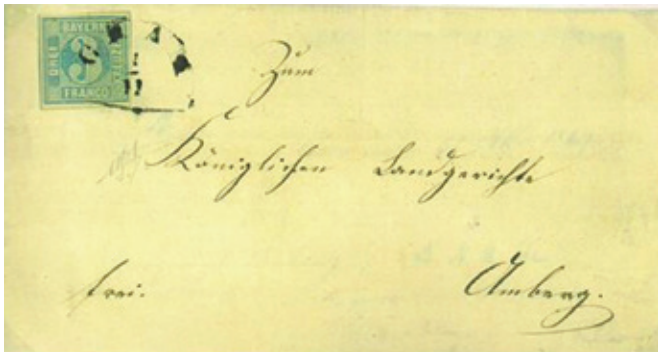 BAYERN
DREI
3
KREUZER
FRANCO
CHAM
Zum
Königlichen Landgerichte
frei.
Amberg.